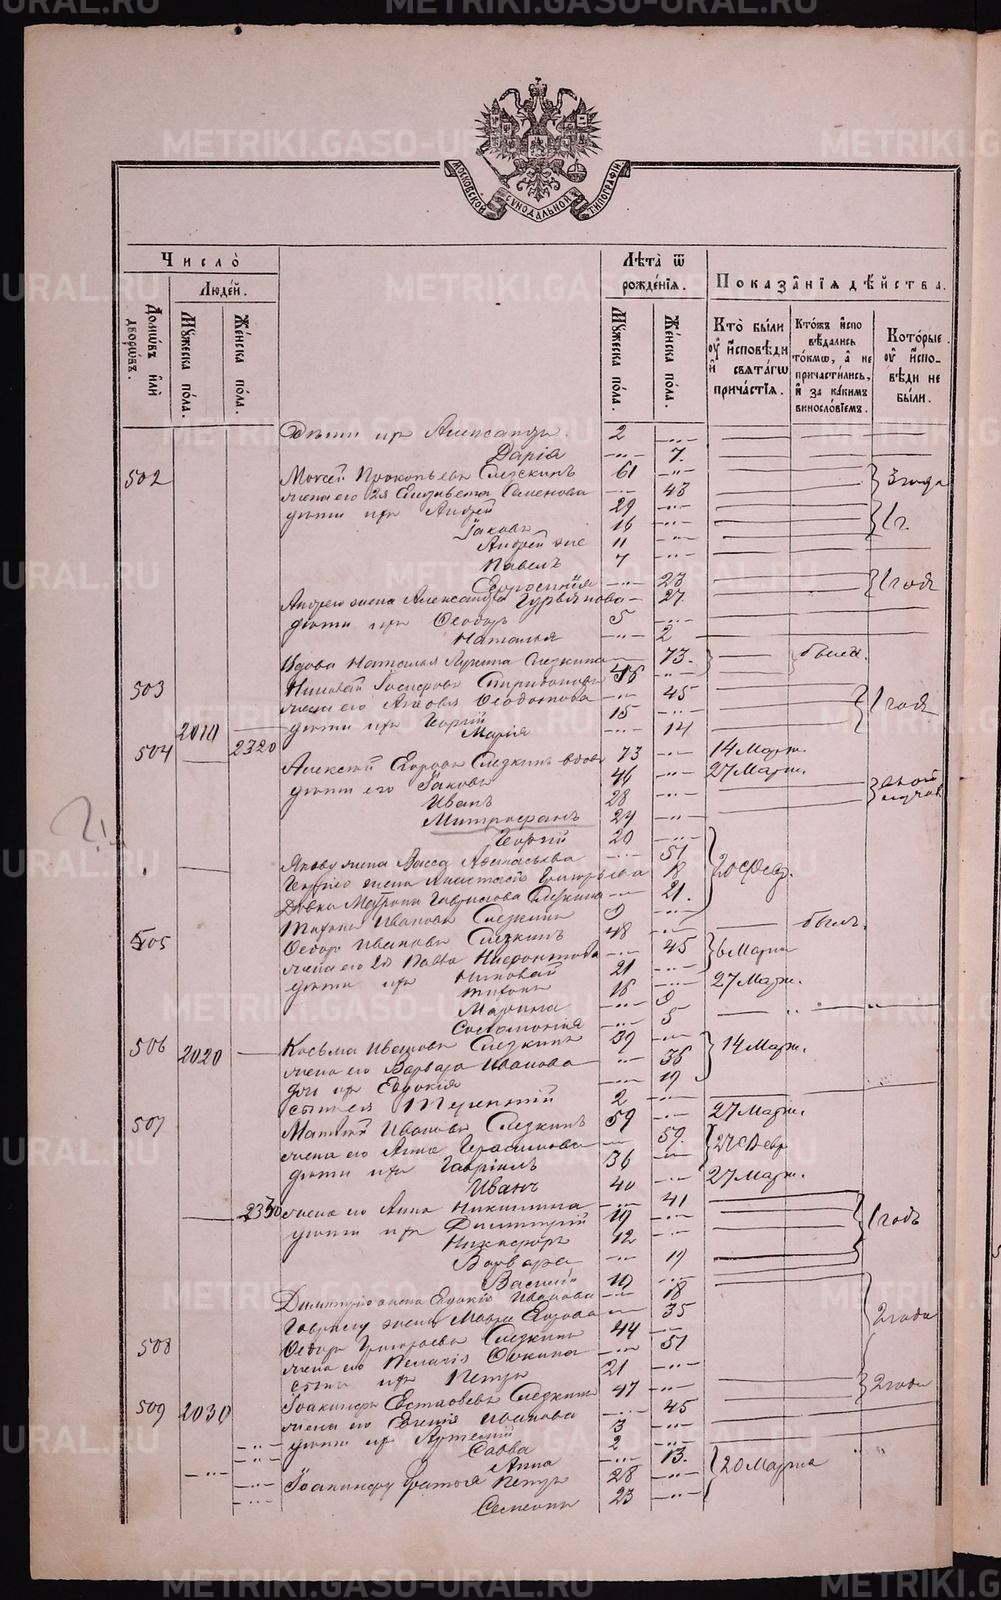 METRIKI.GASO-URAL.RU
МОСКОВСКОЙ СѴНОДАЛЬНОЙ ТИПОГРАФІИ
Число̀
Люде́й.
Домѡ́въ и҆лѝ дворѡ́въ.
Мꙋ́жеска по́ла.
Же́нска по́ла.
Лѣ́та ѿ рожде́нїѧ.
Мꙋ́жеска по́ла.
Же́нска по́ла.
Показа̑нїѧ дѣ́йства.
Кто̀ бы́ли
ᲂу҆ и҆́сповѣди
и҆ свѧта́гѡ
прича́стїѧ.
Кто́жъ и҆спо
вѣ́дались
то́кмѡ, а҆ не
причасти́лись,
и҆ за ка́кимъ
виносло́вїемъ.
Кото́рые
ᲂу҆ и҆́спо-
вѣди не
бы́ли.
дѣти ихъ Александръ. 2
Дарія 7.
502 Моисей Прокопьевъ Слезкинъ 61 3 года
жена его 2я Елизавета Семенова 43
дѣти ихъ Андрей 29 1 г.
Іаковъ 16
Андрей же 11
Павелъ 7
Евросинія 23 1 годъ
Андрея жена Александра Гурьянова 27
дѣти ихъ Ѳеодоръ 5
Наталья 2
Вдова Наталья Лукина Слезкина 73. была.
503 Спиридоновъ
жена его Ѳеодотова 45 1 годъ
дѣти ихъ Георгій 15
2010 Марія 14
504 2320 Алексѣй Егоровъ Слезкинъ вдовъ 73 14 Марта.
дѣти его Іаковъ 46 27 Марта.
Иванъ 28
Митрофанъ 24
Георгій 20
Якова жена Васса Аѳанасьева 51 20 Февр.
Георгію жена Анастасія Григорьева 18
Дѣвка Матрона Гаврилова Слезкина 21.
Тихонъ Ивановъ Слезкинъ 9 былъ.
505 Ѳеодоръ Ивановъ Слезкинъ 48
жена его 2я Павла 45 6 Марта
дѣти ихъ 21 27 Марта.
Тихонъ 16
Марина 9
Соломонія 5
506 2020 Косьма Ивановъ Слезкинъ 39
жена его Варвара Иванова 36 14 Марта.
дочь ихъ Евдокія 19
сынъ ея Терентій 2
507 Матѳей Ивановъ Слезкинъ 59 27 Марта.
жена его Анна Герасимова 59. 27 Февр.
дѣти ихъ Гавріилъ 36
Иванъ 40 27 Марта.
2330 жена его Анна Никитина 41
дѣти ихъ Димитрій 19 1 годъ
Никифоръ 12
Варвара 19
Василій 10
Димитрію жена Евдокія Иванова 18
Гаврилу жена Марѳа Егорова 35 2 года
508 Ѳеодоръ Григорьевъ Слезкинъ 44
жена его Пелагія 51
сынъ ихъ Петръ 21
509 2030 Іоакинфъ Евстаѳьевъ Слезкинъ 47 2 года
жена его Евгенія Иванова 45
дѣти ихъ Артемій 3
Савва 2
Анна 13.
Іоакинфу братья Петръ 28 20 Марта
Семеонъ 23